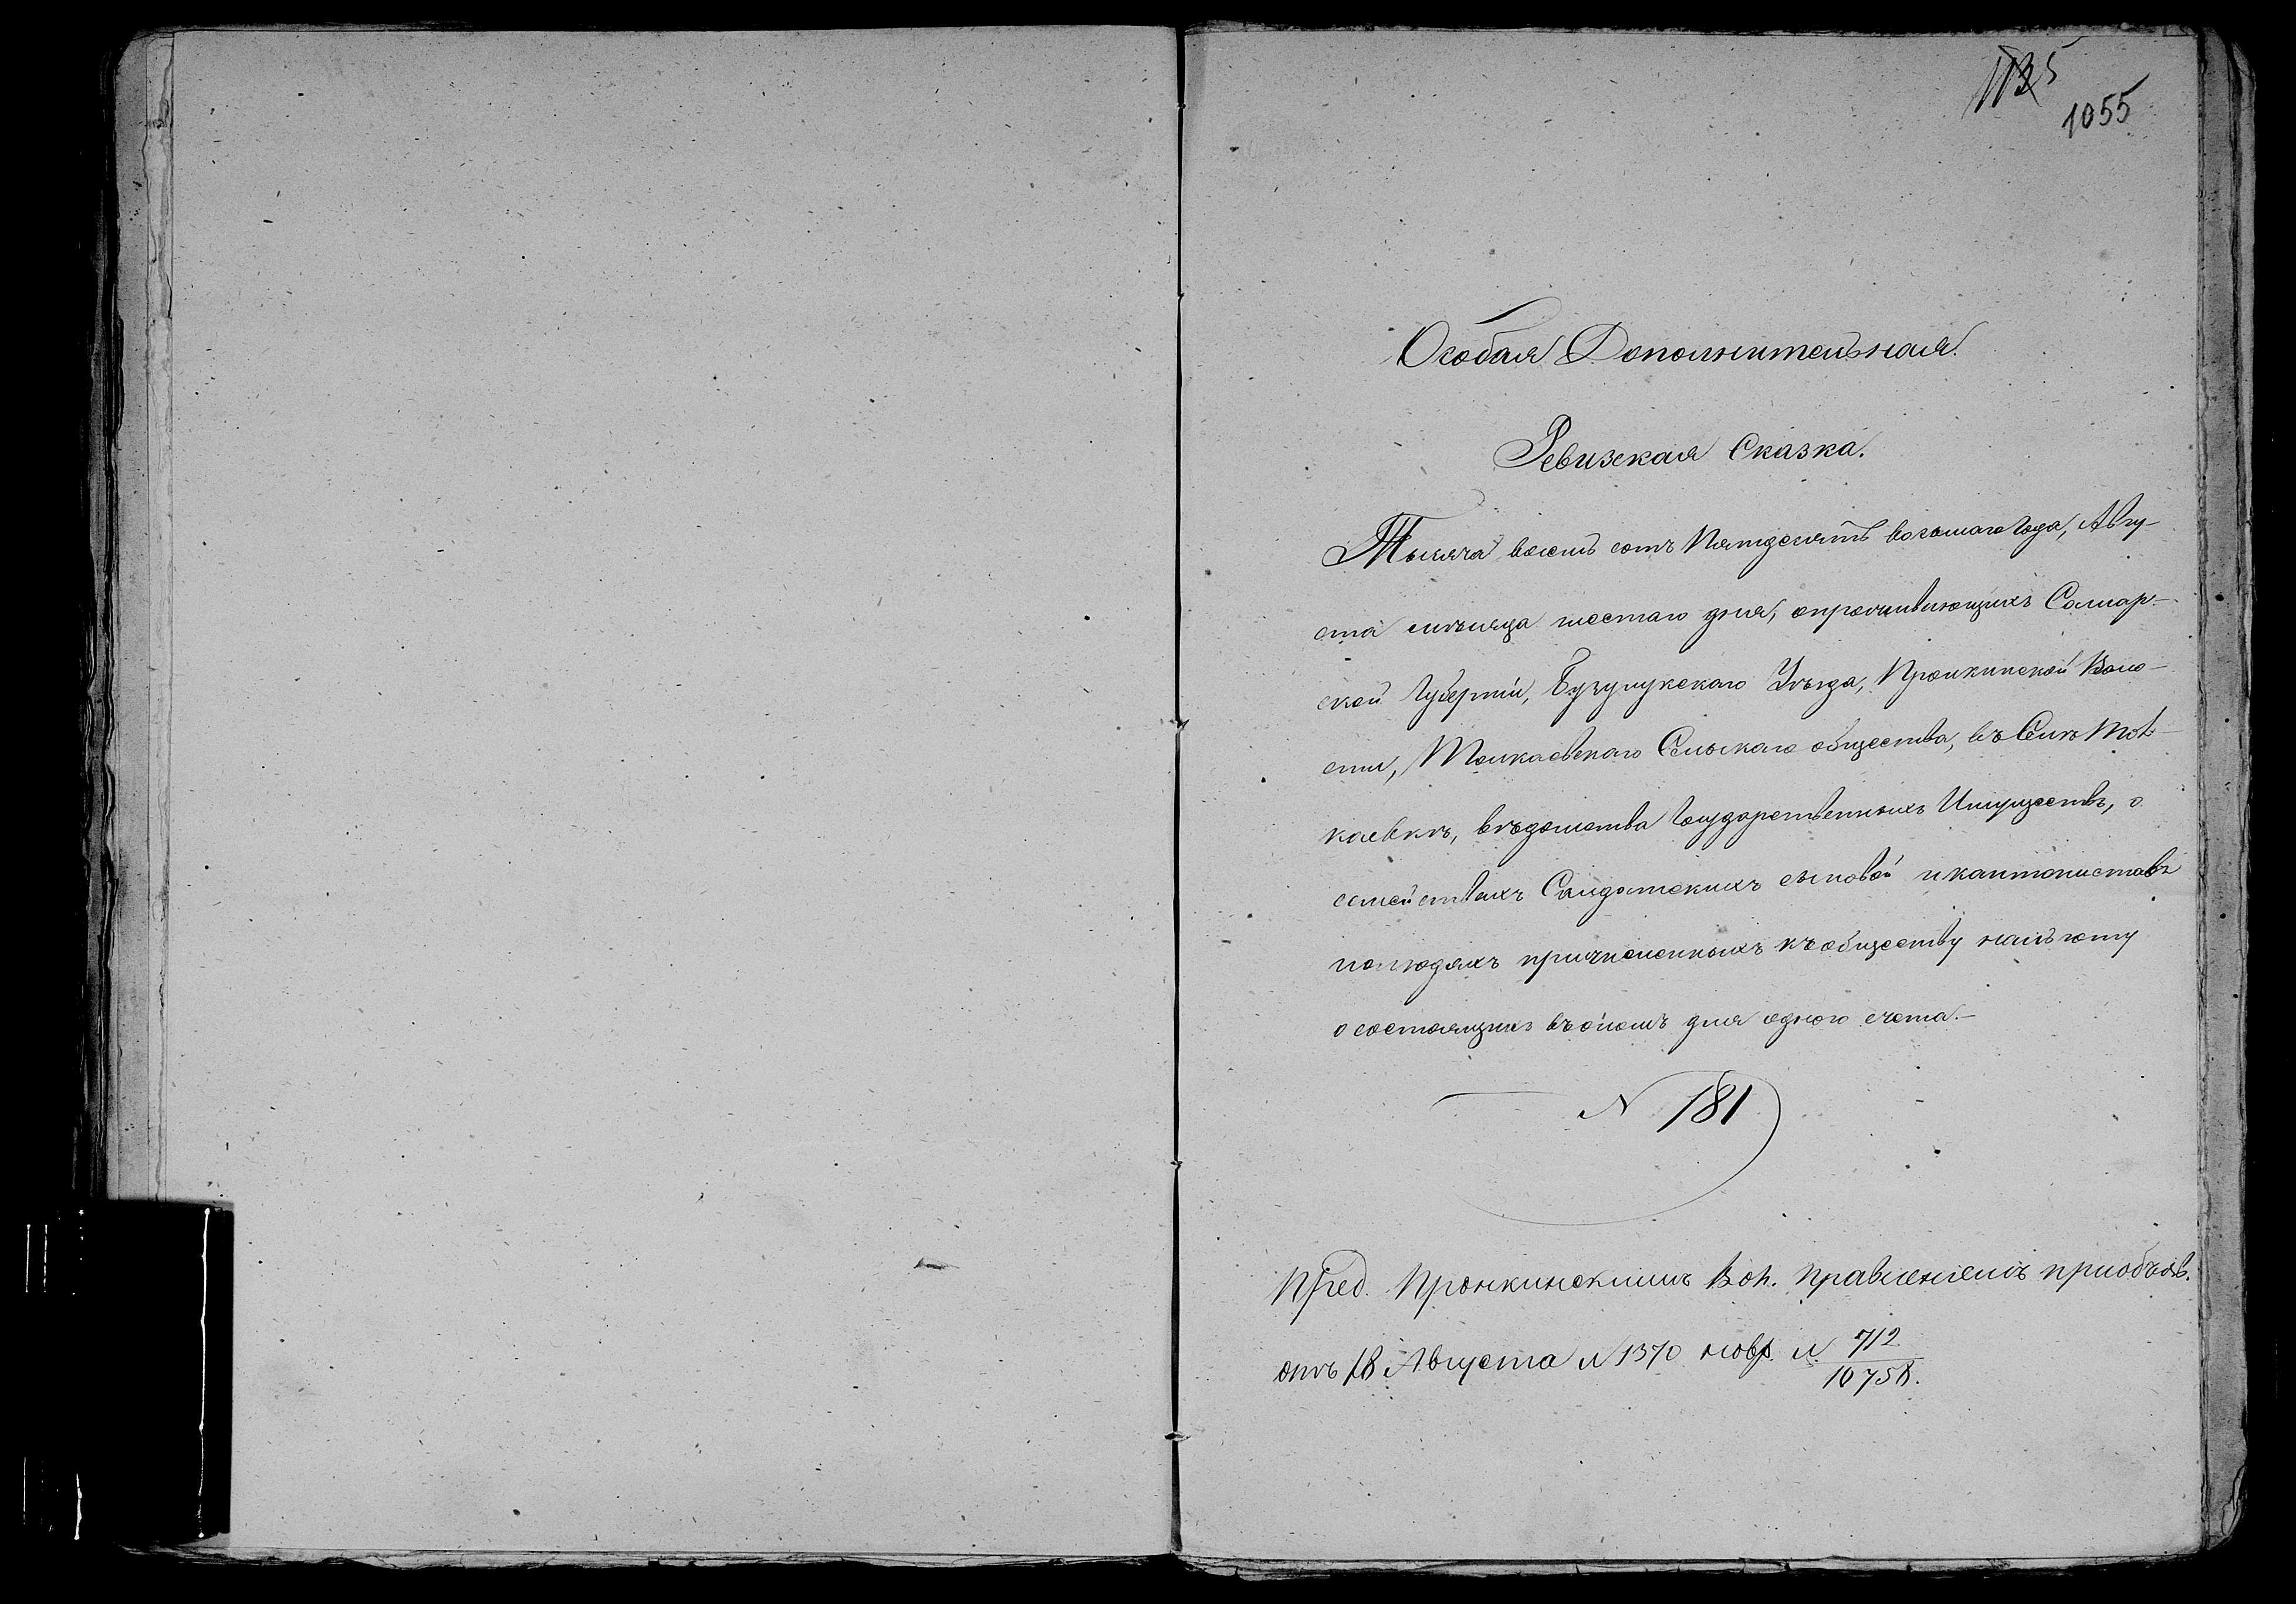 1055
Особая Дополнительная.
Ревизская Сказка.
Тысяча восемь сотъ Пятдесятъ восьмаго Года, Авгу-
ста мѣсяца шестаго дня, о проживающихъ Самар-
ской Губерніи, Бузулукскаго Уѣзда, Пронкинской Воло-
сти, Толкаевскаго Сельскаго общества, въ Селѣ Тол-
каевкѣ, вѣдомства Государственныхъ Имуществъ, о
семействахъ Солдатскихъ сыновей и кантонистовъ
и о людяхъ причисленныхъ къ обществу на льготу
о состоящихъ въ ономъ для одного счета.-
N 181
Пред. Пронкинскимъ Вол. Правленіемъ при объяв.
отъ 18 Августа N 1370 N 712
10758.